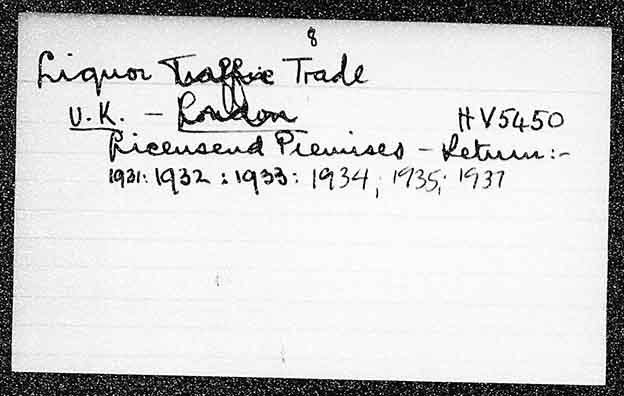 8
Liquor Traffic Trade
U.K. - London HV5450
Licensend Premises - Return:-
1931: 1932 : 1933: 1934; 1935; 1937